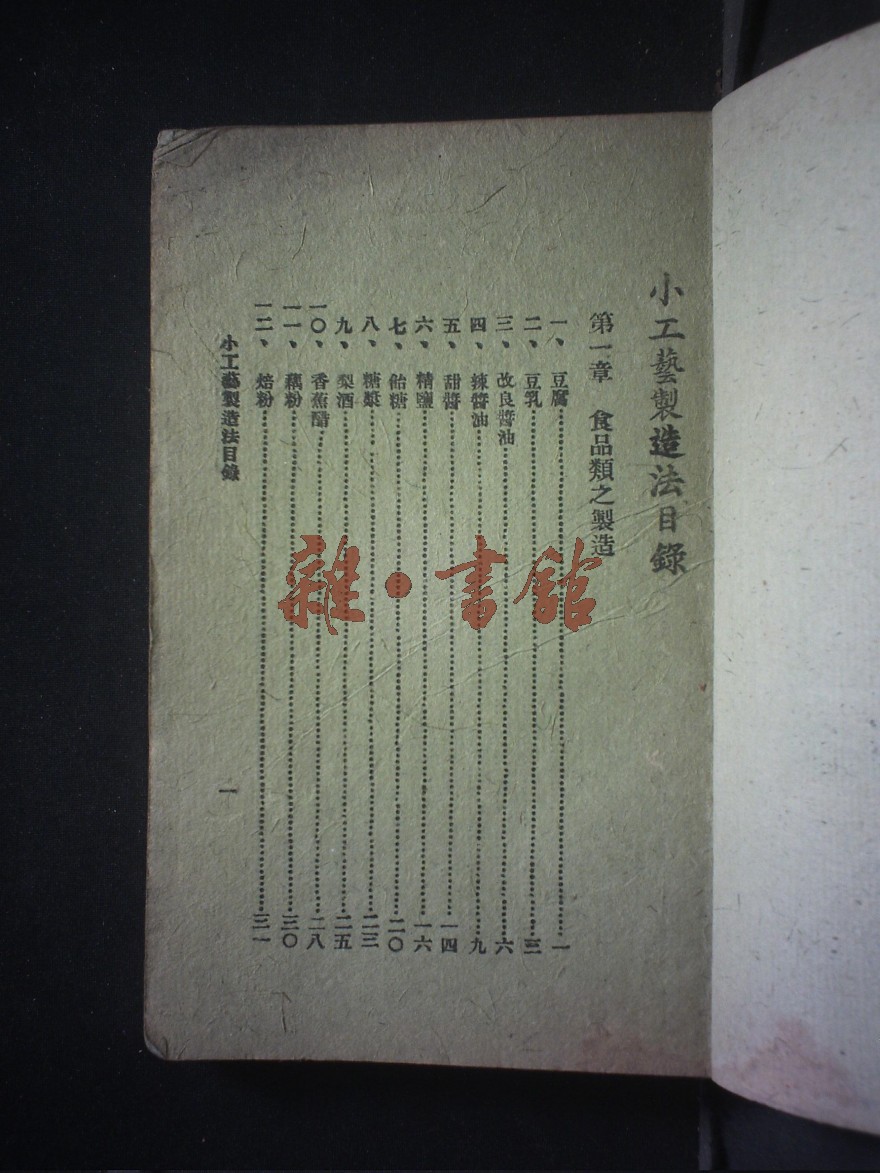 小工藝製造法目錄
第一章　食品類之製造
一、豆腐……一
二、豆乳……三
三、改良醬油……六
四、辣醬油……九
五、甜醬……一四
六、精鹽……一六
七、飴糖……二〇
八、糖漿……二三
九、梨酒……二五
一〇、香蕉醋……二八
一一、藕粉……三〇
一二、焙粉……三一
小工藝製造法目錄
一
雜·書館